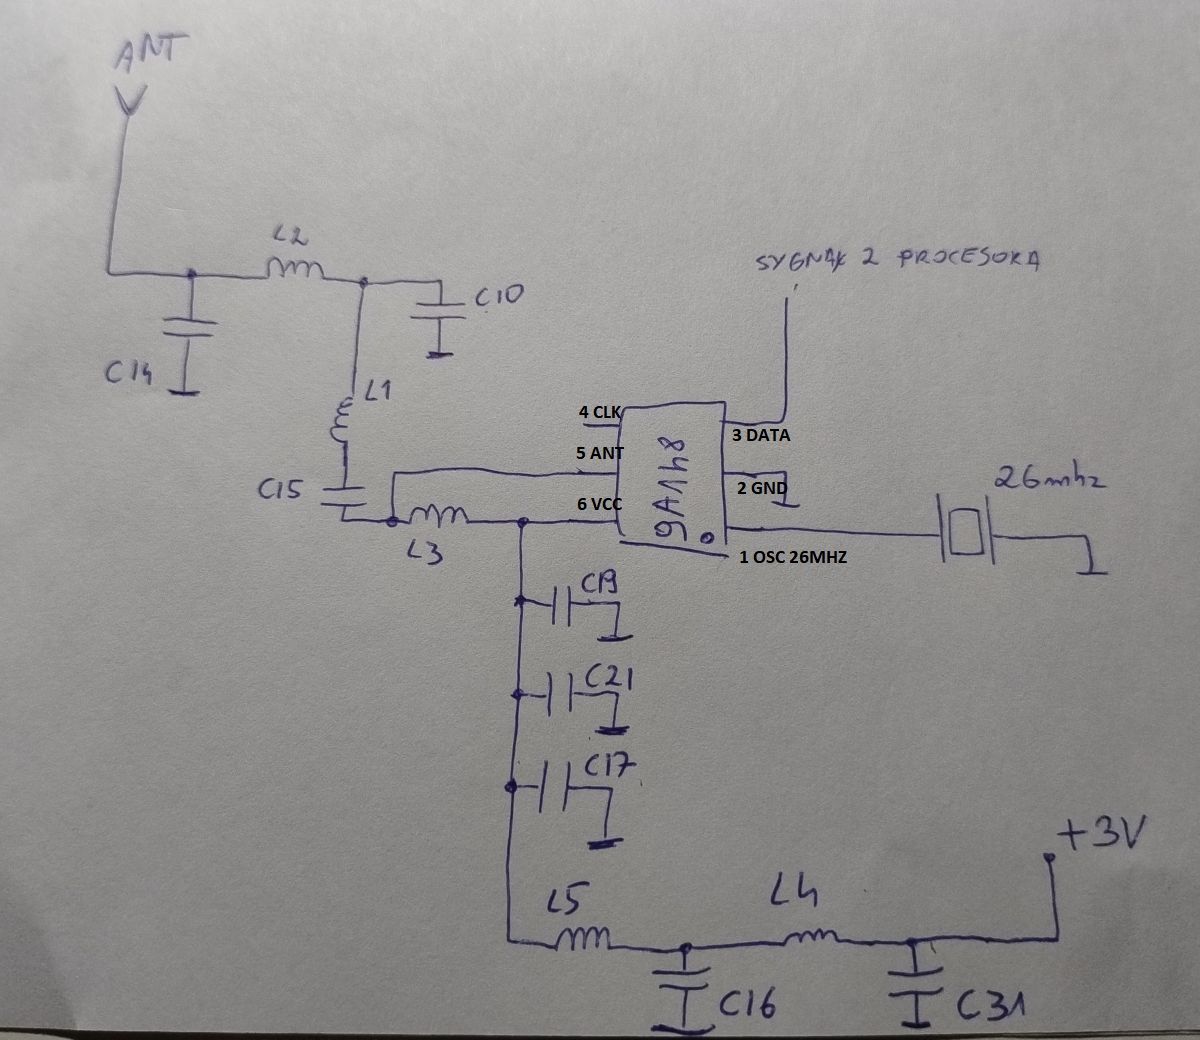 ANT
L2
SYGNAŁ Z PROCESORA
C10
C14
L1
4 CLK
3 DATA
5 ANT
26mhz
C15
2 GND
6 VCC
L3
1 OSC 26MHZ
C19
C21
C17
+3V
L5
L4
C16
C31